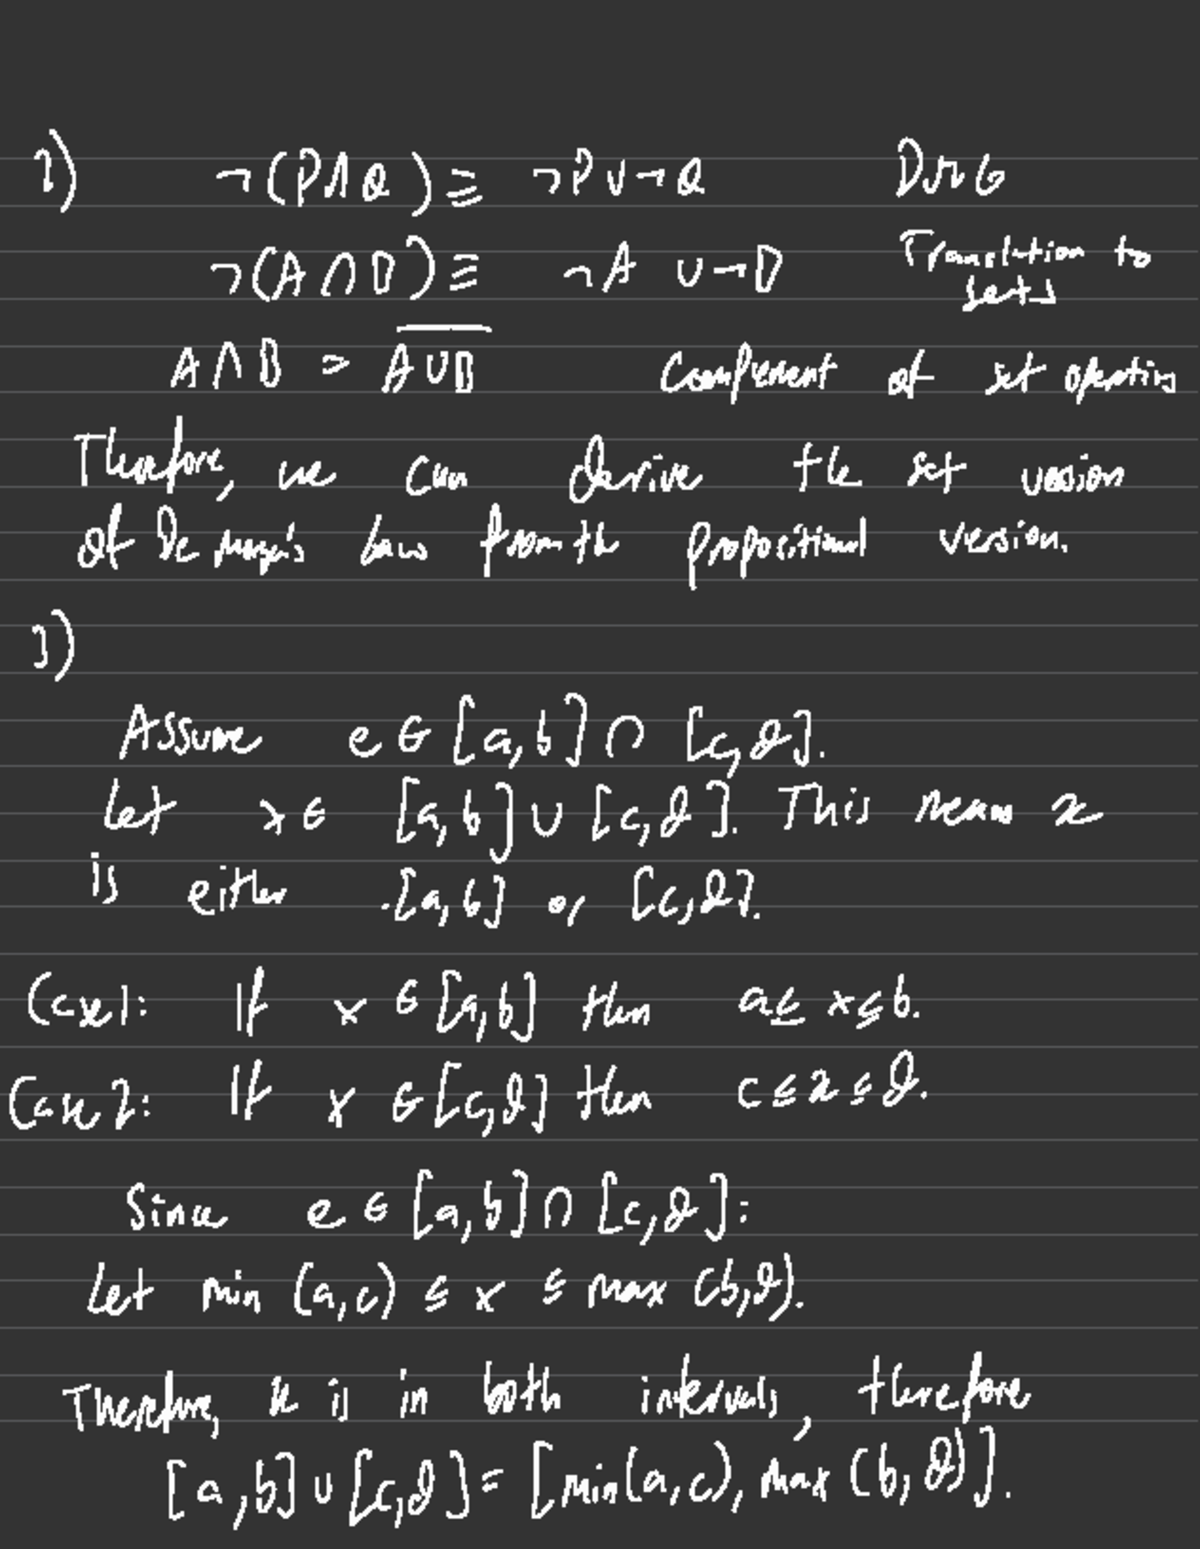 2) ¬(P∧Q) ≡ ¬P∨¬Q
¬(A∩B) ≡ ¬A ∪ ¬B Translation to
sets
A∩B = \overline{A∪B} Complement of set operations
Therefore, we can derive the set version
of De Morgan's Law from the propositional version.
3)
Assume e ∈ [a,b] ∩ [c,d].
Let x ∈ [a,b] ∪ [c,d]. This means x
is either [a,b] or [c,d].
Case 1: If x ∈ [a,b] then a ≤ x ≤ b.
Case 2: If x ∈ [c,d] then c ≤ x ≤ d.
Since e ∈ [a,b] ∩ [c,d]:
Let min (a,c) ≤ x ≤ max (b,d).
Therefore, x is in both intervals, therefore
[a,b] ∪ [c,d] = [min(a,c), max(b,d)].